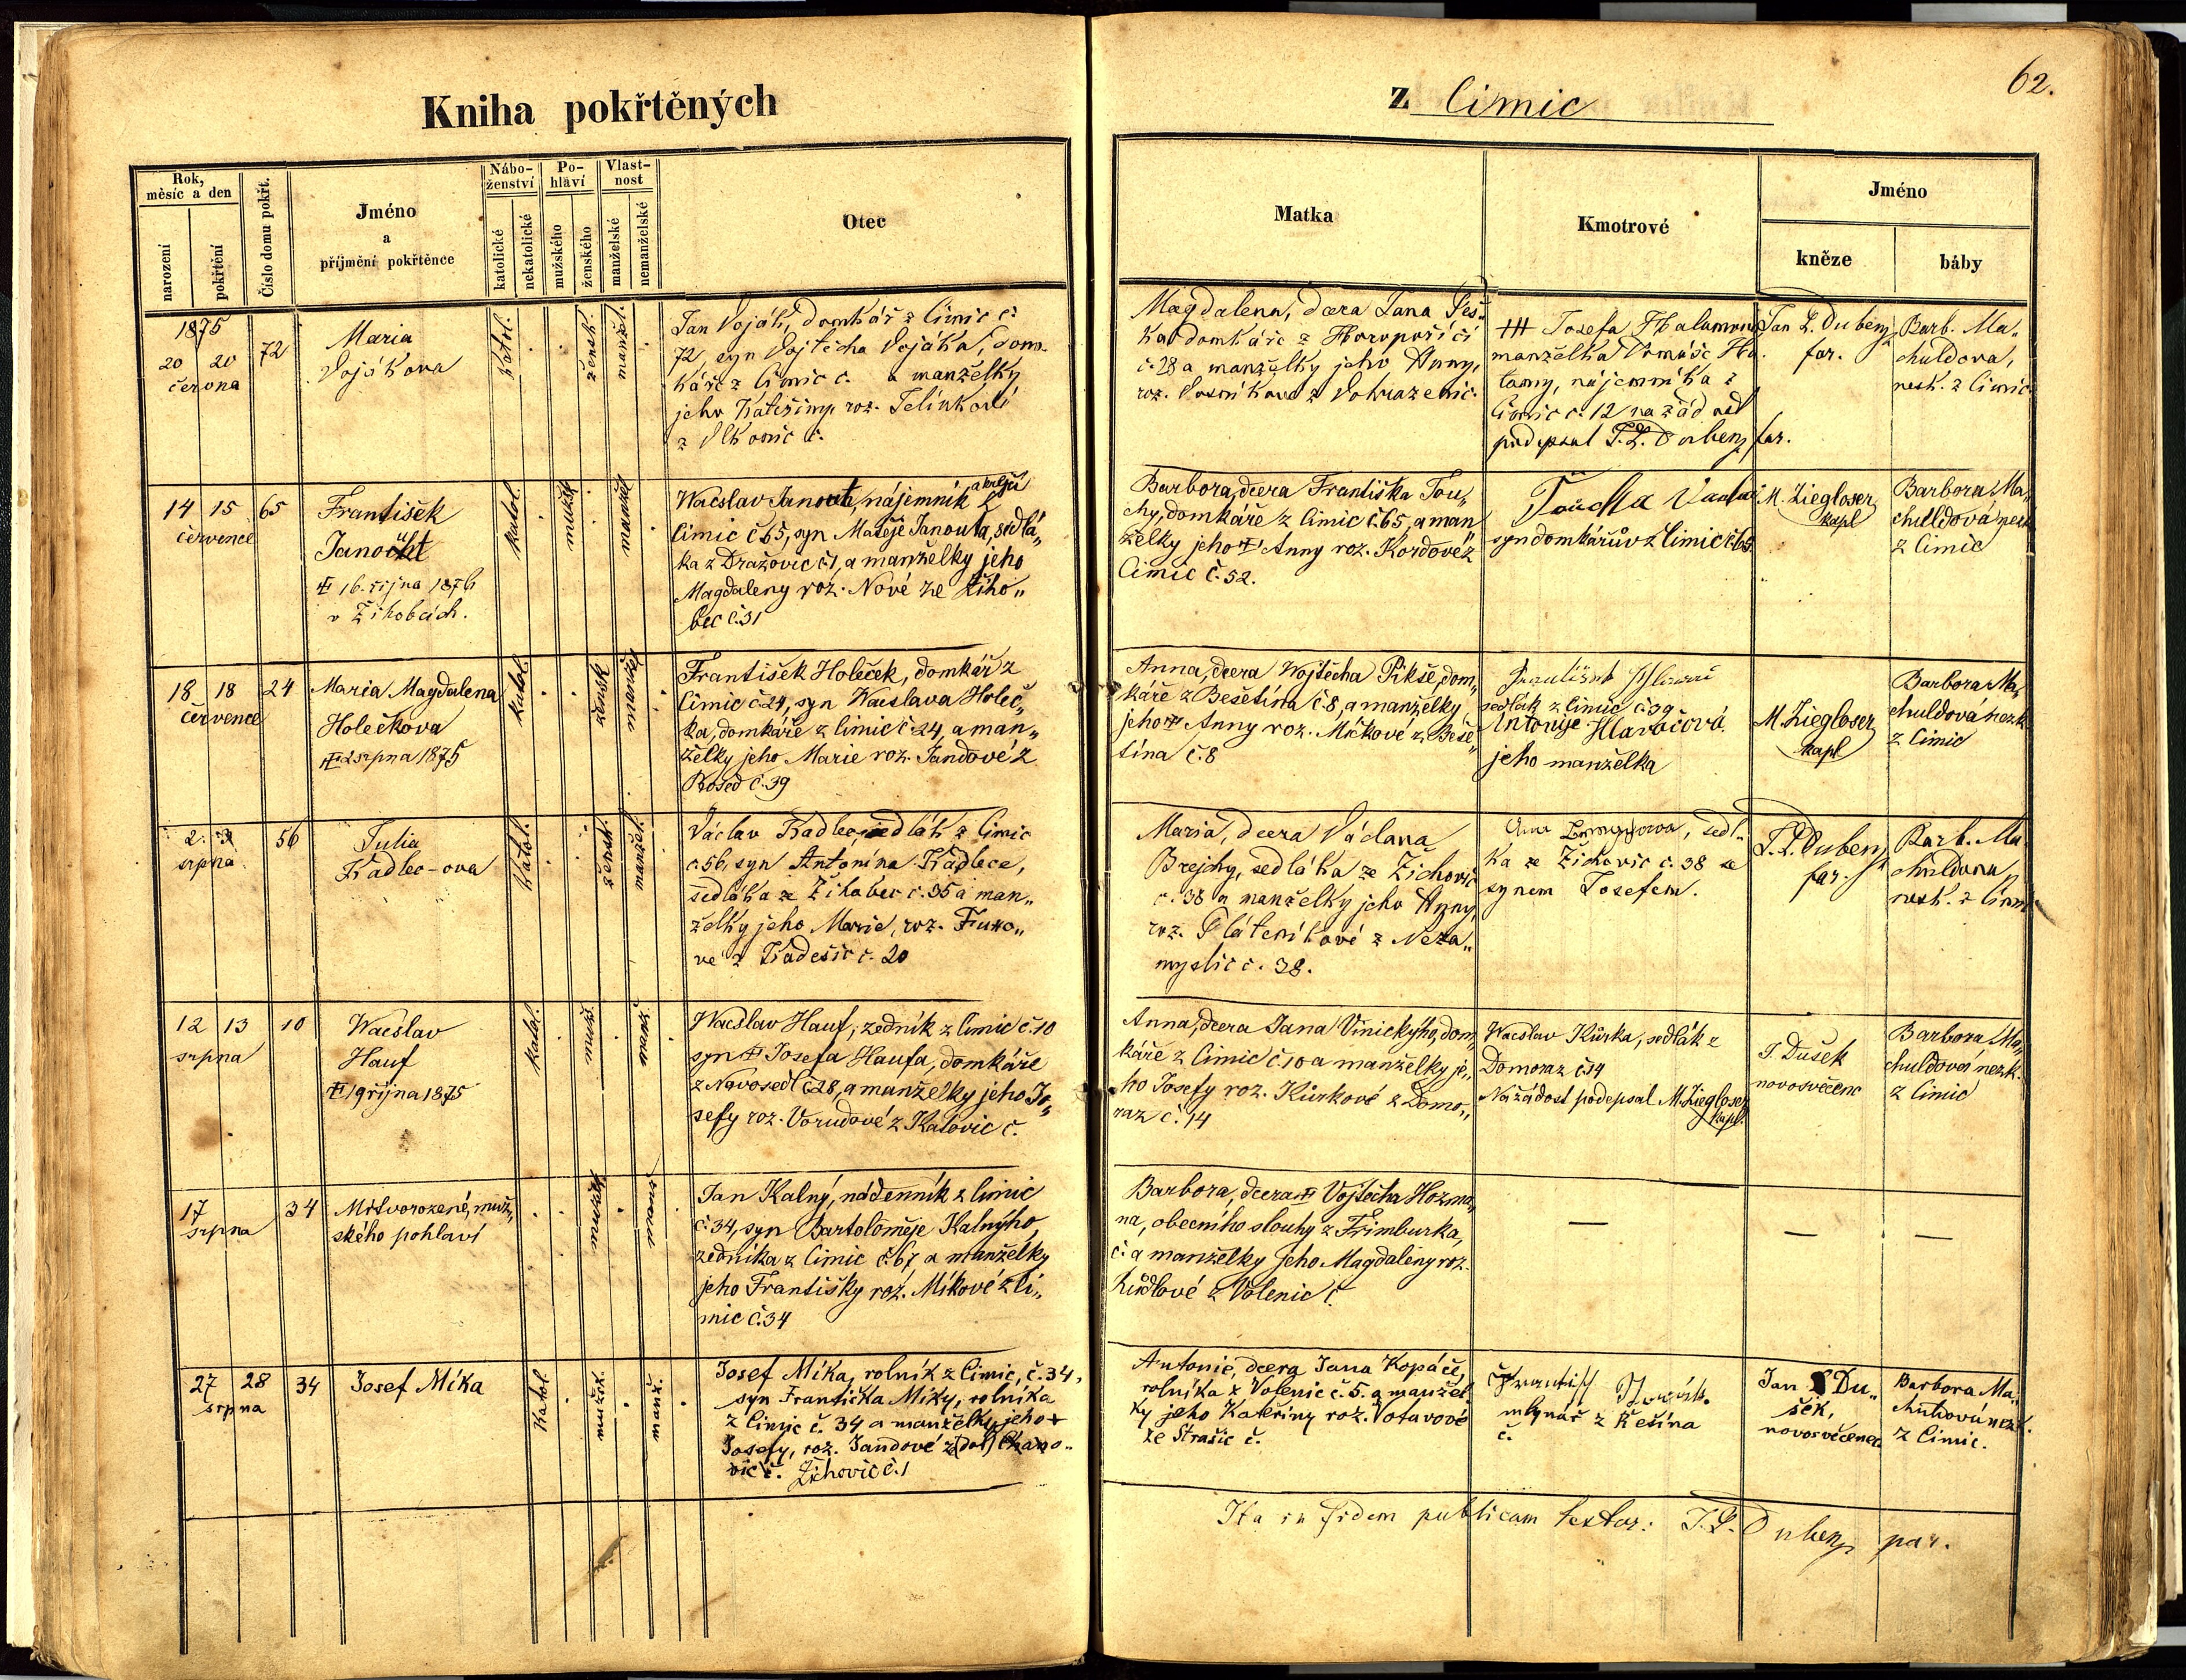 Kniha pokřtěných
z Cimic
62.
Rok, měsíc a den
narození
pokřtění
Číslo domu pokřt.
Jméno
a
příjmění pokřtěnce
Náboženství
katolické
nekatolické
Pohlaví
mužského
ženského
Vlastnost
manželské
nemanželské
Otec
Matka
Kmotrové
Jméno
kněze
báby
1875
20 20
června
72
Maria
Vojákova
katol.
žensk.
manžel.
Jan Voják, domkář z Cimic č.
72, syn Vojtěcha Vojáka, dom-
káře z Cimic č. a manželky
jeho Kateřiny, roz.
z č.
Magdalena, dcera Jana Peš-
ka domkáře z
č. 28 a manželky jeho Anny,
roz.
+++ Josefa
manželka
nájemníka z
Cimic č. 12 na žádost
podepsal J. L. Dubenz far.
Jan L. Dubenz
far.
Barb. Ma-
chuldova,
nezk. z Cimic
14 15
července
65
František
Janouta
16. října 1876
v Žihobcích.
katol.
mužsk.
manžel
Wácslav Janouta, nájemník z
Cimic č. 65, syn Matěje Janouta, sedlá„
ka z Dražovic č 1, a manželky jeho
Magdaleny roz. Nové ze Žiho„
bec č. 31
Barbora, dcera Františka Tou„
chy, domkáře z Cimic č. 65, a man„
želky jeho Anny roz. Kordové z
Cimic č. 52.
Toucha
syn domkářův z Cimic č. 65
M. Ziegloser
kapl
Barbora Ma„
chuldová nezk
z Cimic
18 18
července
24
Maria Magdalena
Holečkova
2 srpna 1875
katol.
žensk
manžel
František Holeček, domkář z
Cimic č. 24, syn Wácslava Holeč„
ka, domkáře z Cimic č. 24, a man„
želky jeho Marie roz. Jandové z
Bosed č. 39
Anna, dcera Wojtěcha Pikše, dom„
káře z Bešetína č. 8, a manželky
jeho Anny roz. Mičkové z Beše„
tína č. 8
sedlák z Cimic č 39
Antonije Hlaváčová
jeho manželka
M. Ziegloser
kapl
Barbora Ma„
chuldová nezk
z Cimic
2. 3
srpna
56
Julia
Kadlec-ova
katol.
žensk.
manžel.
Václav Kadlec, sedlák z Cimic
č. 56, syn Antonína Kadlece,
sedláka ze Žihobec č. 35 a man„
želky jeho Marie, roz.
z Kadešic č. 20
Maria, dcera Václava
Brejchy, sedláka ze Žichovic
č. 38 a manželky jeho Anny,
roz. Pláteníkové z Neza„
myslic č. 38.
sedl.
ka ze Žichovic č. 38 se
synem Josefem.
J. L. Dubenz
far.
Barb. Ma
chuldova
nezk. z Cimic
12 13
srpna
10
Wácslav
Hauf
19 října 1875
katol.
mužs.
manž.
Wácslav Hauf, zedník z Cimic č. 10
syn Josefa Haufa, domkáře
z Novosedl č 28, a manželky jeho Jo„
sefy roz. Vorudové z Katovic č.
Anna, dcera Jana Vinickýho, dom„
káře z Cimic č. 10 a manželky je„
ho Josefy roz. Kůrkové z Domo„
raz č. 14
Wácslav Kůrka, sedlák z
Domoraz č. 14
Na žádost podepsal M. Ziegloser
kapl.
J. Dušek
novosvěcenc
Barbora Ma„
chuldová nezk.
z Cimic
17
srpna
34
Mrtvorozené, muž„
ského pohlaví
mužsk.
Jan Kalný, nádenník z Cimic
č. 34, syn Bartoloměje Kalnýho,
zedníka z Cimic č. 67 a manželky
jeho Františky roz. Míkové z Ci„
mic č. 34
Barbora, dcera Vojtěcha Hozma„
na, obecního slouhy z Frimburka,
č. a manželky jeho Magdaleny roz.
z Volenic č.
27 28
srpna
34
Josef Míka
katol.
mužsk.
manž.
Josef Míka, rolník z Cimic, č. 34,
syn Františka Míky, rolníka
z Cimic č. 34 a manželky jeho +
Josefy, roz. Jandové z (dol) Chano„
vic č. Žichovic č. 1
Antonie, dcera Jana Kopáče,
rolníka z Volenic č. 5. a manžel
ky jeho Kateřiny roz. Votavové
ze Strašic č.
mlynář z Kešína
č.
Jan Du„
šek,
novosvěcenec
Barbora Ma„
chuldová nezk.
z Cimic.
Ita in fidem publicam testor: J. L. Dubenz par.